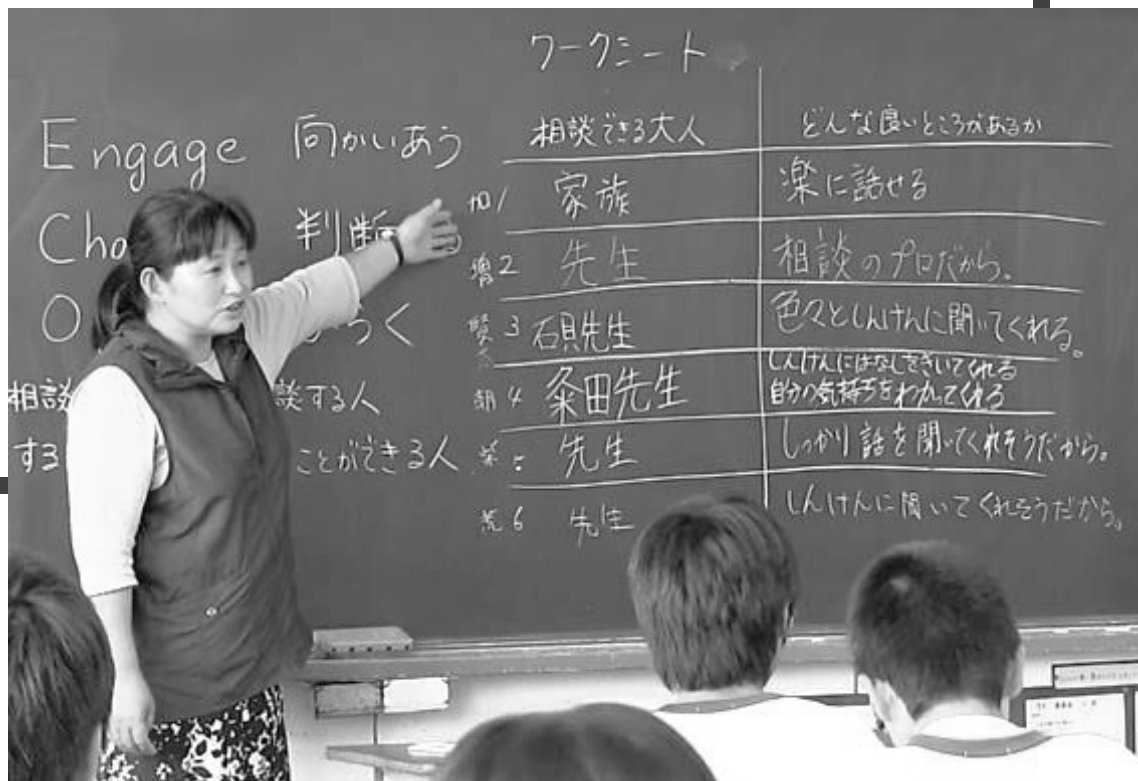 ワークシート
Engage 向かいあう
Cha 判断
O つく
相談 談する人
する ことができる人
相談できる大人 どんな良いところがあるか
加1 家族 楽に話せる
増2 先生 相談のプロだから。
3 石貝先生 色々としんけんに聞いてくれる。
朝4 粂田先生 しんけんにはなしをきいてくれる
自分の気持ちをわかってくれる
先生 しっかり話を聞いてくれそうだから。
荒6 先生 しんけんに聞いてくれそうだから。